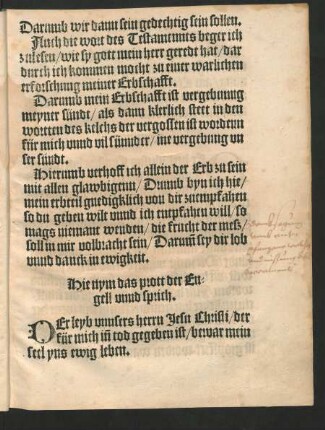 Darumb wir dann sein gedechtig sein sollen.
Auch die wort des Testamentes beger ich
zulesen/wie sy gott mein herr geredt hat/dar
durch ich kommen mocht zu einer warlichen
erforschung meiner Erbschafft.
Darumb mein Erbschafft ist vergebunng
meyner sündt/als dann klerlich stett in den
wortten des kelchs der vergossen ist wordenn
für mich vnnd vil sünnder/ine vergebung vn
ser sündt.
Hierumb verhoff ich allein der Erb zu sein
mit allen glawbigenn/Dumb byn ich hie/
mein erbteil gnedigklich von dir zuempfahen
so du geben wilt vnnd ich empfahen will/so
mags niemant wenden/die frucht der meß/
soll in mir volbracht sein/Darum̄ sey dir lob
vnnd danck in ewigkeit.
Hie nym das prott der En-
gell vnnd sprich.
DEr leyb vnnsers herrn Jesu Christi/der
für mich im̄ tod gegeben ist/bewar mein
seel yns ewig leben.